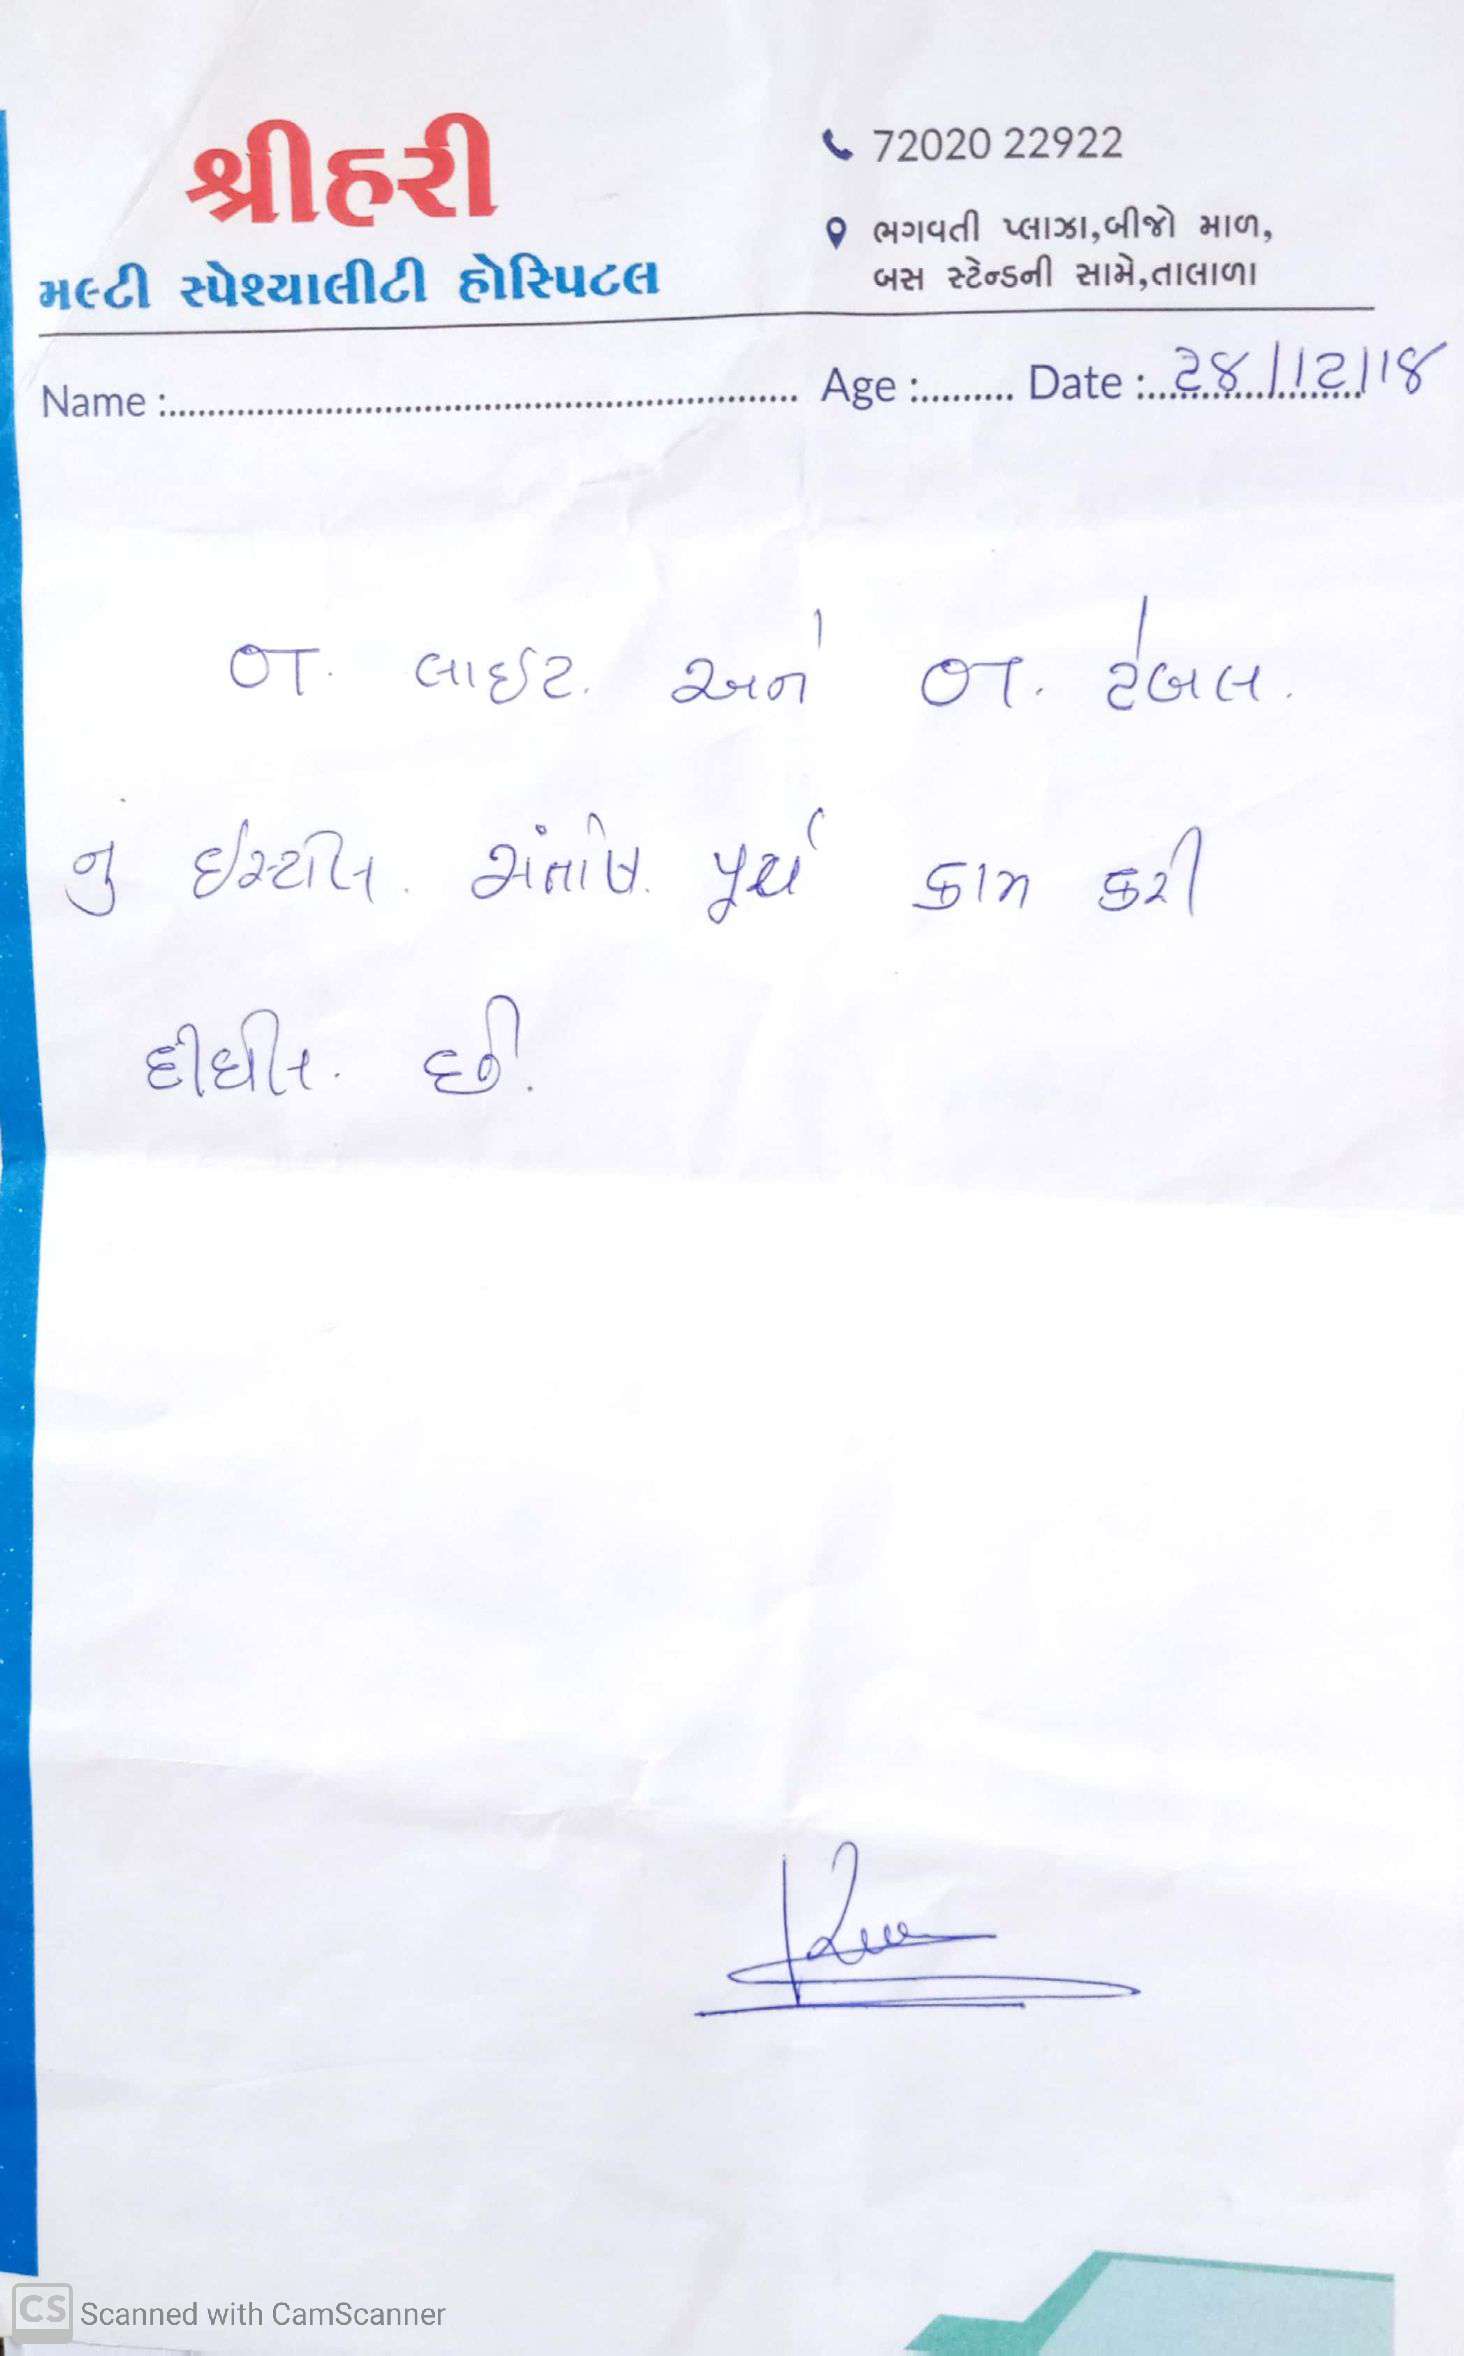 શ્રીહરી
મલ્ટી સ્પેશ્યાલીટી હોસ્પિટલ
72020 22922
ભગવતી પ્લાઝા,બીજો માળ,
બસ સ્ટેન્ડની સામે,તાલાળા
Name : Age : Date : ૨૪/12/1૪
OT. લાઈટ. અને OT. ટેબલ.
નુ ઈસ્ટોલ. સંતોષ. પૂર્ણ કામ કરી
દીધીલ. છે.
CS Scanned with CamScanner